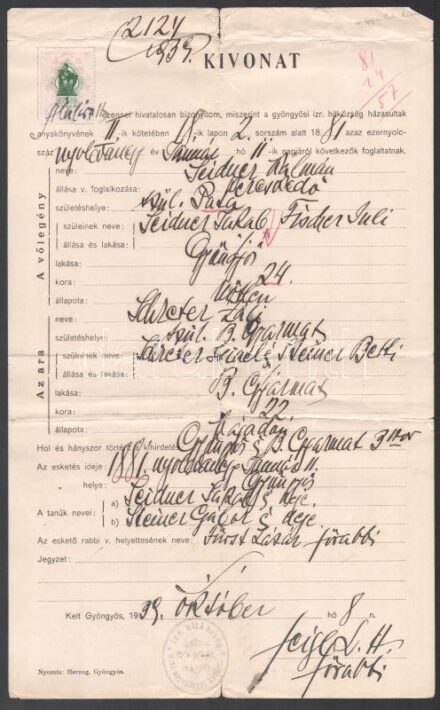 2124
939.
KIVONAT
81
24
57
Alulirott ezennel hivatalosan bizonyitom, miszerint a gyöngyösi izr. hitközség házasultak
anyakönyvének II.-ik kötetében -ik lapon 2. sorszám alatt 1881 azaz ezernyolc-
száz nyolcvanegy év Január hó 11-ik napjáról következők foglaltatnak.
A vőlegény
neve: Seidner Kálmán
állása v. foglalkozása: kereskedő
születéshelye: szül. Pata
szüleinek neve: Seidner Jakab Fischer Juli
állása és lakása:
lakása: Gyöngyös
kora: 24.
állapota: nőtlen
Az ara
neve: Záli
születéshelye: szül. B. Gyarmat
szüleinek neve: Steiner Betti
állása és lakása:
lakása: B. Gyarmat
kora: 22
állapota: hajadon
Hol és hányszor történt a kihirdetés: Gyöngyös B. Gyarmat 3
Az esketés ideje: 1881. nyolcvanegy Január 11.
helye: Gyöngyös
A tanúk nevei:
a) Seidner Jakab s neje.
b) Steiner Gábor s neje.
Az eskető rabbi v. helyettesének neve: Fürst Lázár főrabbi
Jegyzet:
Kelt Gyöngyös, 1939. október hó 8 n.
főrabbi
Nyomta: Herzog, Gyöngyös.